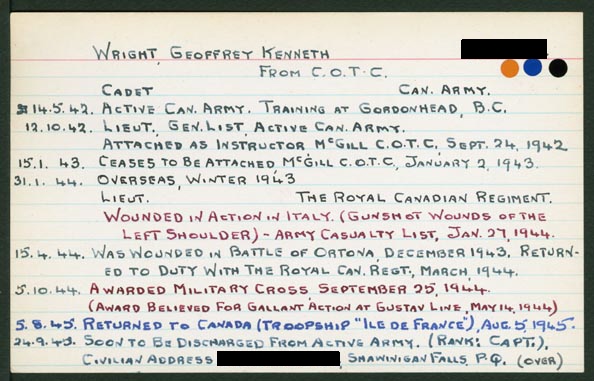 WRIGHT, GEOFFREY KENNETH
FROM C.O.T.C.
CADET CAN. ARMY.
14.5.42. ACTIVE CAN. ARMY. TRAINING AT GORDONHEAD, B.C.
12.10.42. LIEUT., GEN. LIST, ACTIVE CAN. ARMY.
ATTACHED AS INSTRUCTOR McGILL C.O.T.C., SEPT. 24, 1942
15.1. 43. CEASES TO BE ATTACHED, McGILL C.O.T.C., JANUARY 2, 1943.
31.1. 44. OVERSEAS, WINTER 1943
LIEUT. THE ROYAL CANADIAN REGIMENT.
WOUNDED IN ACTION IN ITALY. (GUNSHOT WOUNDS OF THE
LEFT SHOULDER) - ARMY CASUALTY LIST, JAN. 27, 1944.
15.4. 44. WAS WOUNDED IN BATTLE OF ORTONA, DECEMBER 1943. RETURN-
ED TO DUTY WITH THE ROYAL CAN. REGT., MARCH, 1944.
5.10.44. AWARDED MILITARY CROSS, SEPTEMBER 25, 1944.
(AWARD BELIEVED FOR GALLANT ACTION AT GUSTAV LINE, MAY 14, 1944)
5.8.45. RETURNED TO CANADA (TROOPSHIP "ILE DE FRANCE"), AUG. 5, 1945.
24.9.45. SOON TO BE DISCHARGED FROM ACTIVE ARMY. (RANK: CAPT.),
CIVILIAN ADDRESS , SHAWINIGAN FALLS, P.Q. (OVER)